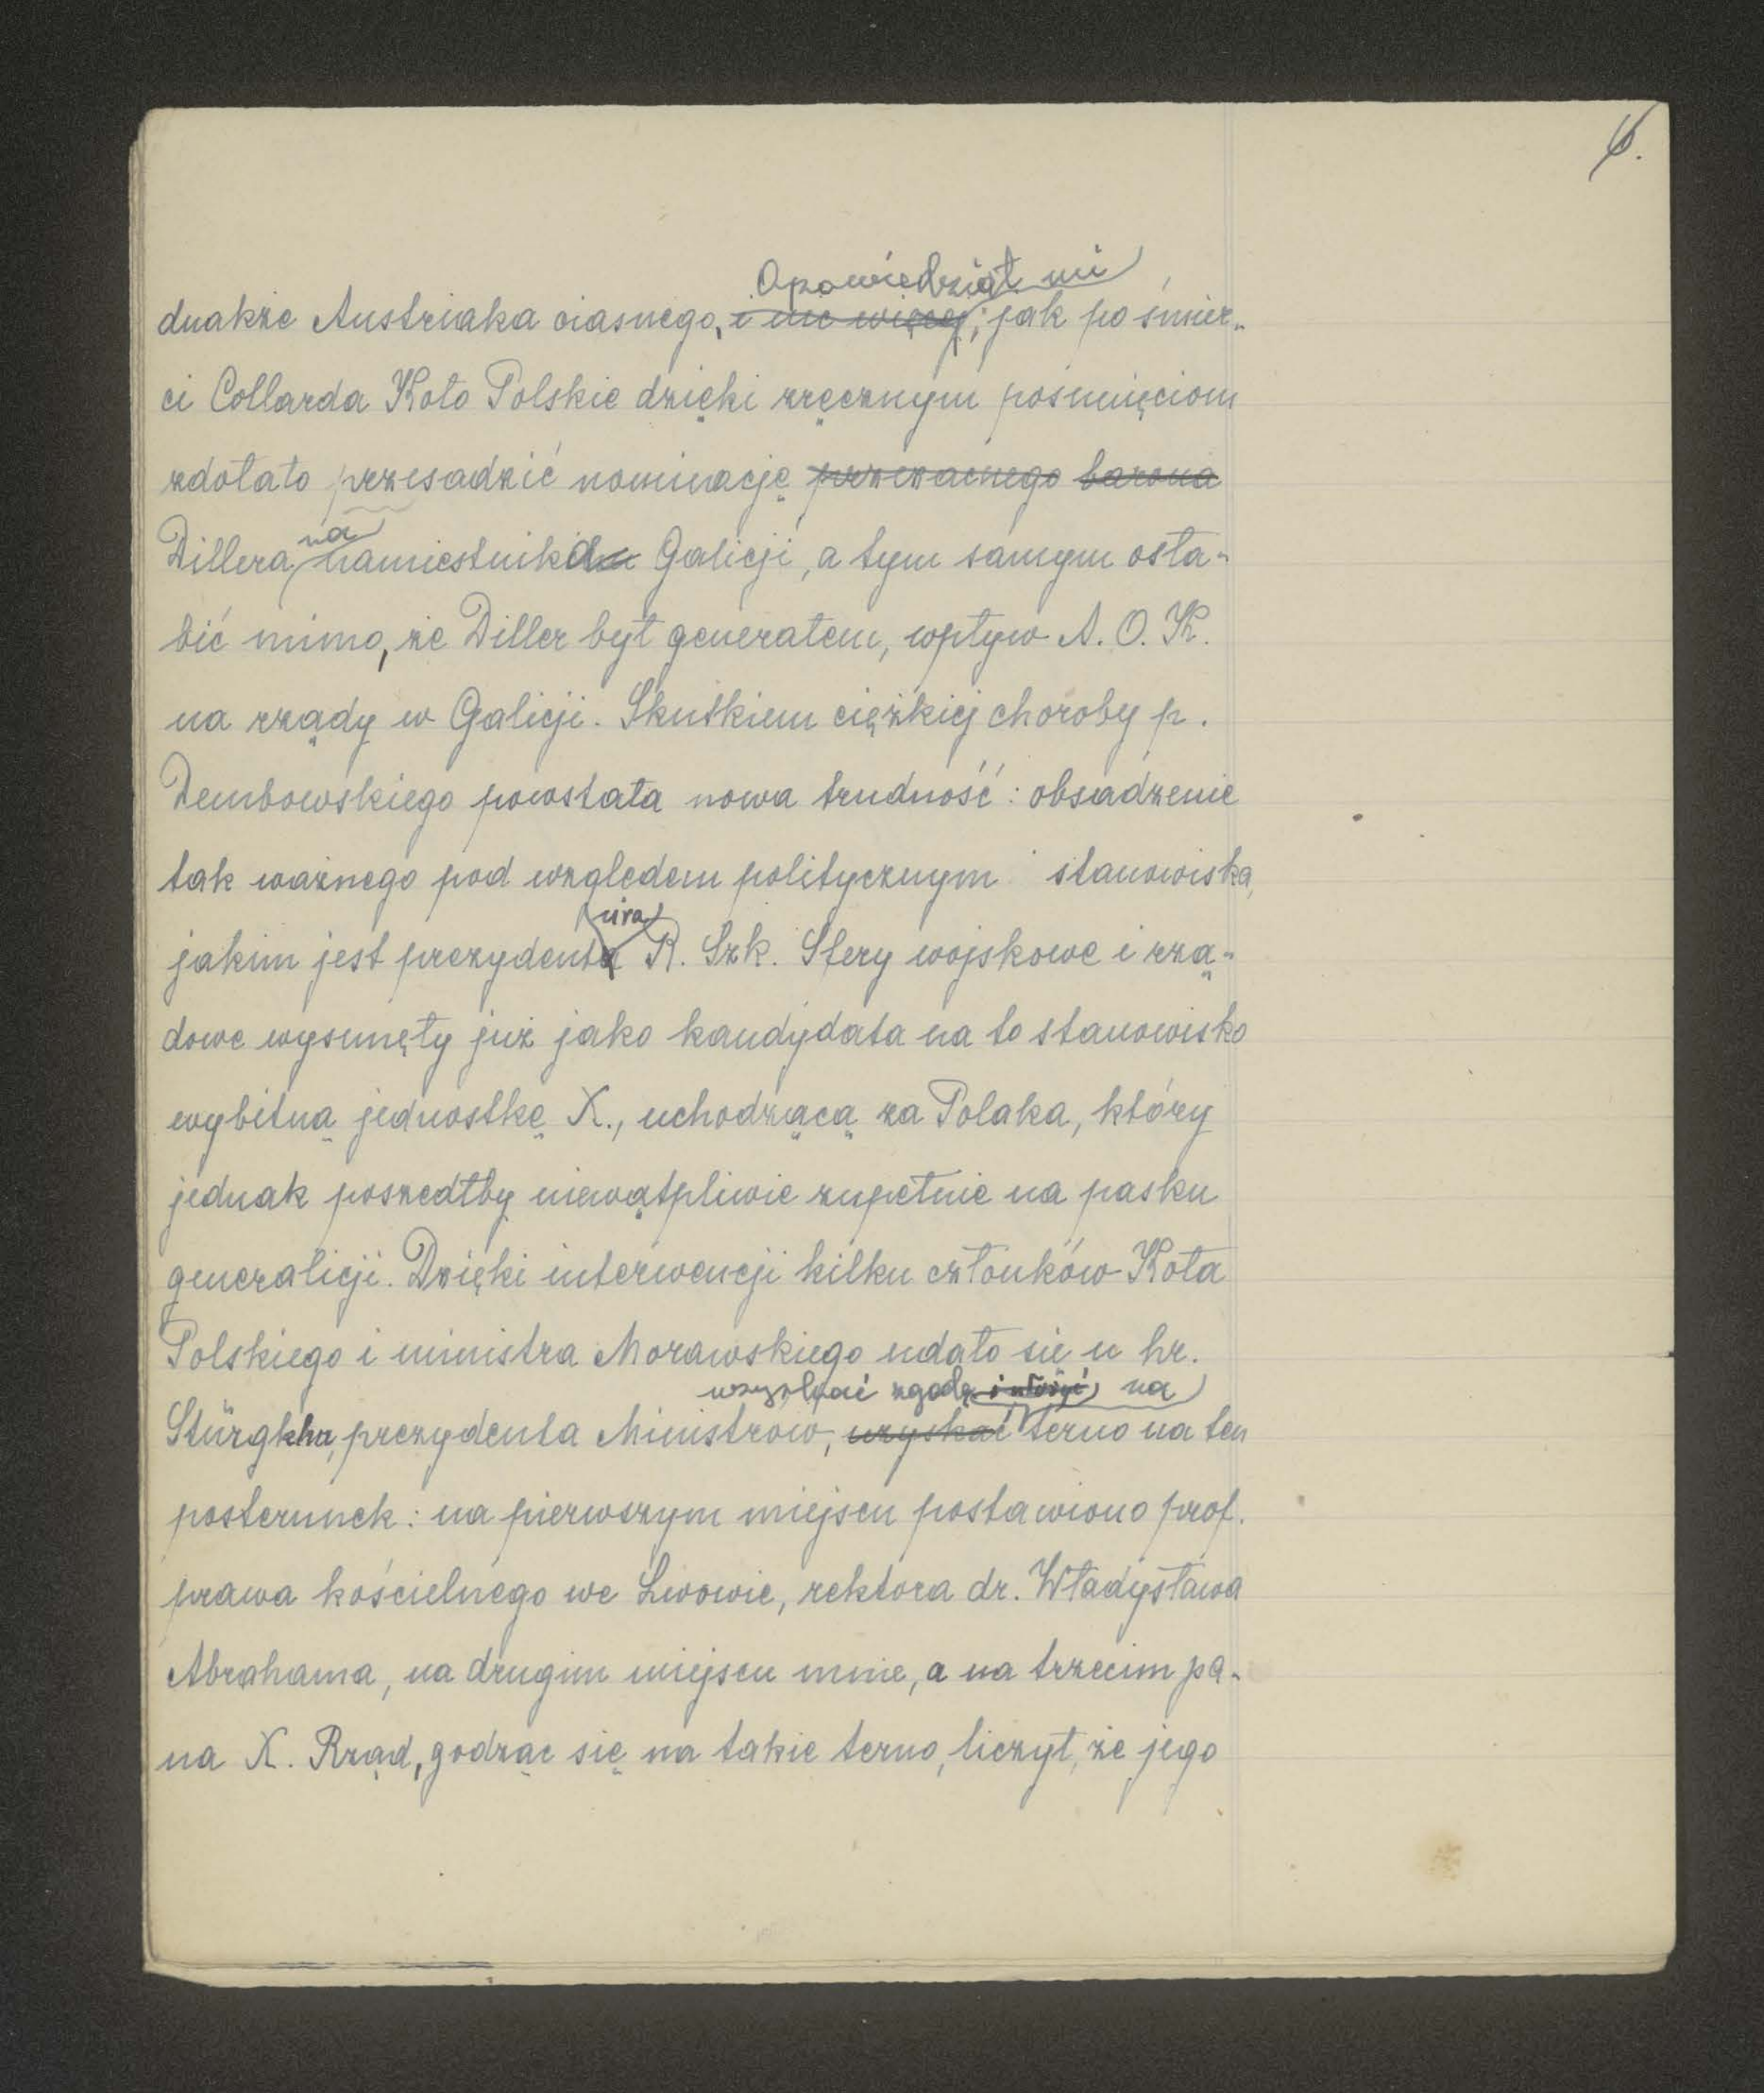 6.
Opowiedział mi
dnakże Austriaka ciasnego, i nic więcej, jak po śmier-
ci Collarda Koło Polskie dzięki zręcznym posunięciom
zdołało przesadzić nominację przezacnego barona
na
Dillera namiestnika Galicji, a tym samym osła-
bić mimo, że Diller był generałem, wpływ A. O. K.
na rządy w Galicji. Skutkiem ciężkiej choroby p.
Dembowskiego powstała nowa trudność: obsadzenie
tak ważnego pod względem politycznym stanowiska,
ura
jakim jest prezydenta R. Szk. Sfery wojskowe i rzą-
dowe wysunęły już jako kandydata na to stanowisko
wybitną jednostkę X., uchodzącą za Polaka, który
jednak poszedłby niewątpliwie zupełnie na pasku
generalicji. Dzięki interwencji kilku członków Koła
Polskiego i ministra Morawskiego udało się u hr.
uzyskać zgodę i ułożyć na
Stürgkha, prezydenta Ministrów, uzyskać terno na ten
posterunek: na pierwszym miejscu postawiono prof.
prawa kościelnego we Lwowie, rektora dr. Władysława
Abrahama, na drugim miejscu mnie, a na trzecim pa-
na X. Rząd, godząc się na takie terno, liczył, że jego